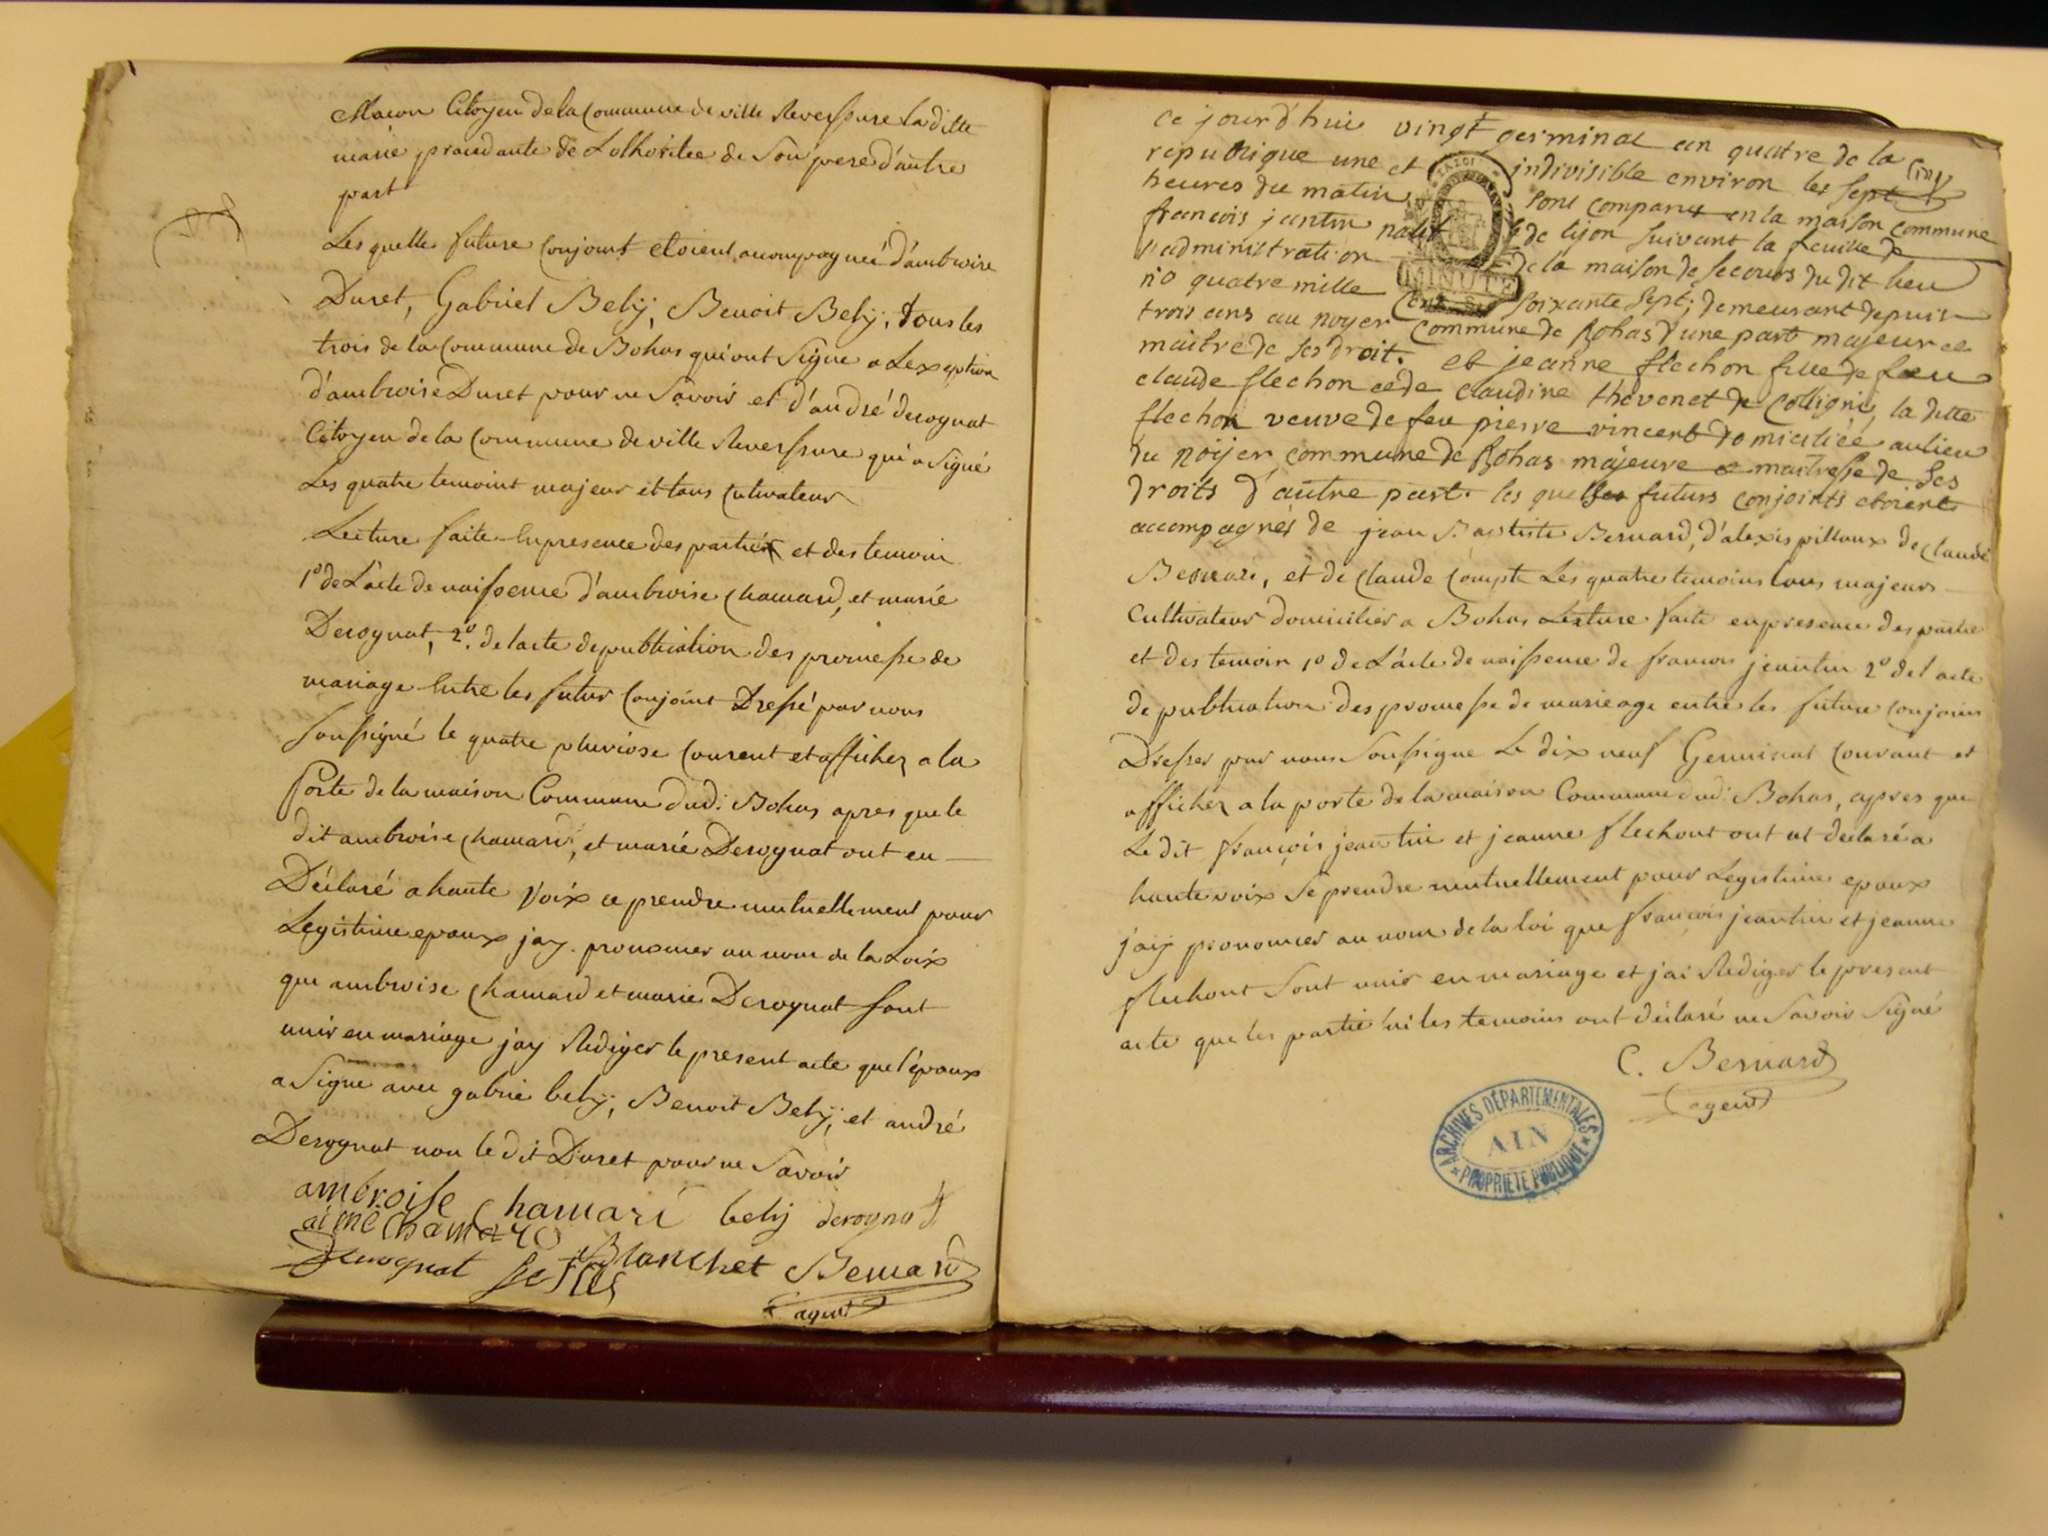 Macon Citoyen de la Commune de ville Reverssure la ditte
marie procedante de Lothoritee de Son pere d'autre
part
Les quelle future Conjoint etoient acompagnee d'ambroise
Duret, Gabriel Belij, Benoit Belij, tous les
trois de la Commune de Bohas qui ont Signe a Lexeption
d'ambroise Duret pour ne Savoir et d'andré derognat
Citoyen de la Commune de ville Reverssure qui a Signé
Les quatre temoint majeur et tous Cutivateur
Lecture faite En presence des parties et des temoin
1º de L'acte de naissence d'ambroise Chamard, et marie
Derognat, 2º. de lacte de publication des promesse de
mariage Entre les futur Conjoint Dressé par nous
soussigné le quatre pluviose Courent et afficher a la
Porte de la maison Commune dud: Bohas apres que le
dit ambroise Chamard, et marie Derognat ont eu
Déclaré a haute voix ce prendre mutuellement pour
Legistime epoux jay prononcer au nom de la Loix
que ambroise Chamard et marie Derognat sont
unis en mariage jay Rediger le present acte que l'époux
a Signe avec gabrie belij, Benoit Belij, et andré
Derognat non le dit Duret pour ne Savoir
ambroise Chamard belij derognat
aimé Chamard
Derognat Blanchet Bernard
agent
Ce jourd'hui vingt germinal an quatre de la
republique une et indivisible environ les sept cinq
heures du matin sont comparus en la maison commune
francois jantin natif de lijon suivant la feuille de
l'administration de la maison de secours du dit lieu
no quatre mille cent soixante sept; demeurant depuis
trois ans au noyer commune de Bohas d'une part majeur et
maitre de ses droit. et jeanne flechon fille de feu
claude flechon et de claudine thevenet de Colligni, la ditte
flechon veuve de feu pierre vincent domiciliée au lieu
du nöijer commune de Bohas majeure et maitresse de ses
droits d'autre part. les quelles futurs conjoints etoient
accompagnés de jean Baptiste Bernard, d'alexis pilloux de Claude
Bernard, et de Claude Compte Les quatre temoins tous majeurs
Cultivateur domicilier a Bohas Lecture faite en presence des partie
et des temoin 1º de L'acte de naissence de francois jeantin 2º de l acte
de publication des promesse de marieage entre les future conjoins
Dresser par nous Soussigne Le dix neuf Germinal Courant et
afficher a la porte de la maison Commune dud: Bohas, apres que
Le dit françois jeantin et jeanne flechont ont ut declaré a
haute voix Se prendre mutuellement pour Legistime epoux
j'aij prononcer au nom de la loi que françois jeantin et jeanne
flechont Sont unis en mariage et jai Rediger le present
acte que les partie ni les temoins ont déclaré ne Savoir Signé
C. Bernard
agent
LA LOI
MINUTE
ARCHIVES DÉPARTEMENTALES
AIN
PROPRIÉTÉ PUBLIQUE